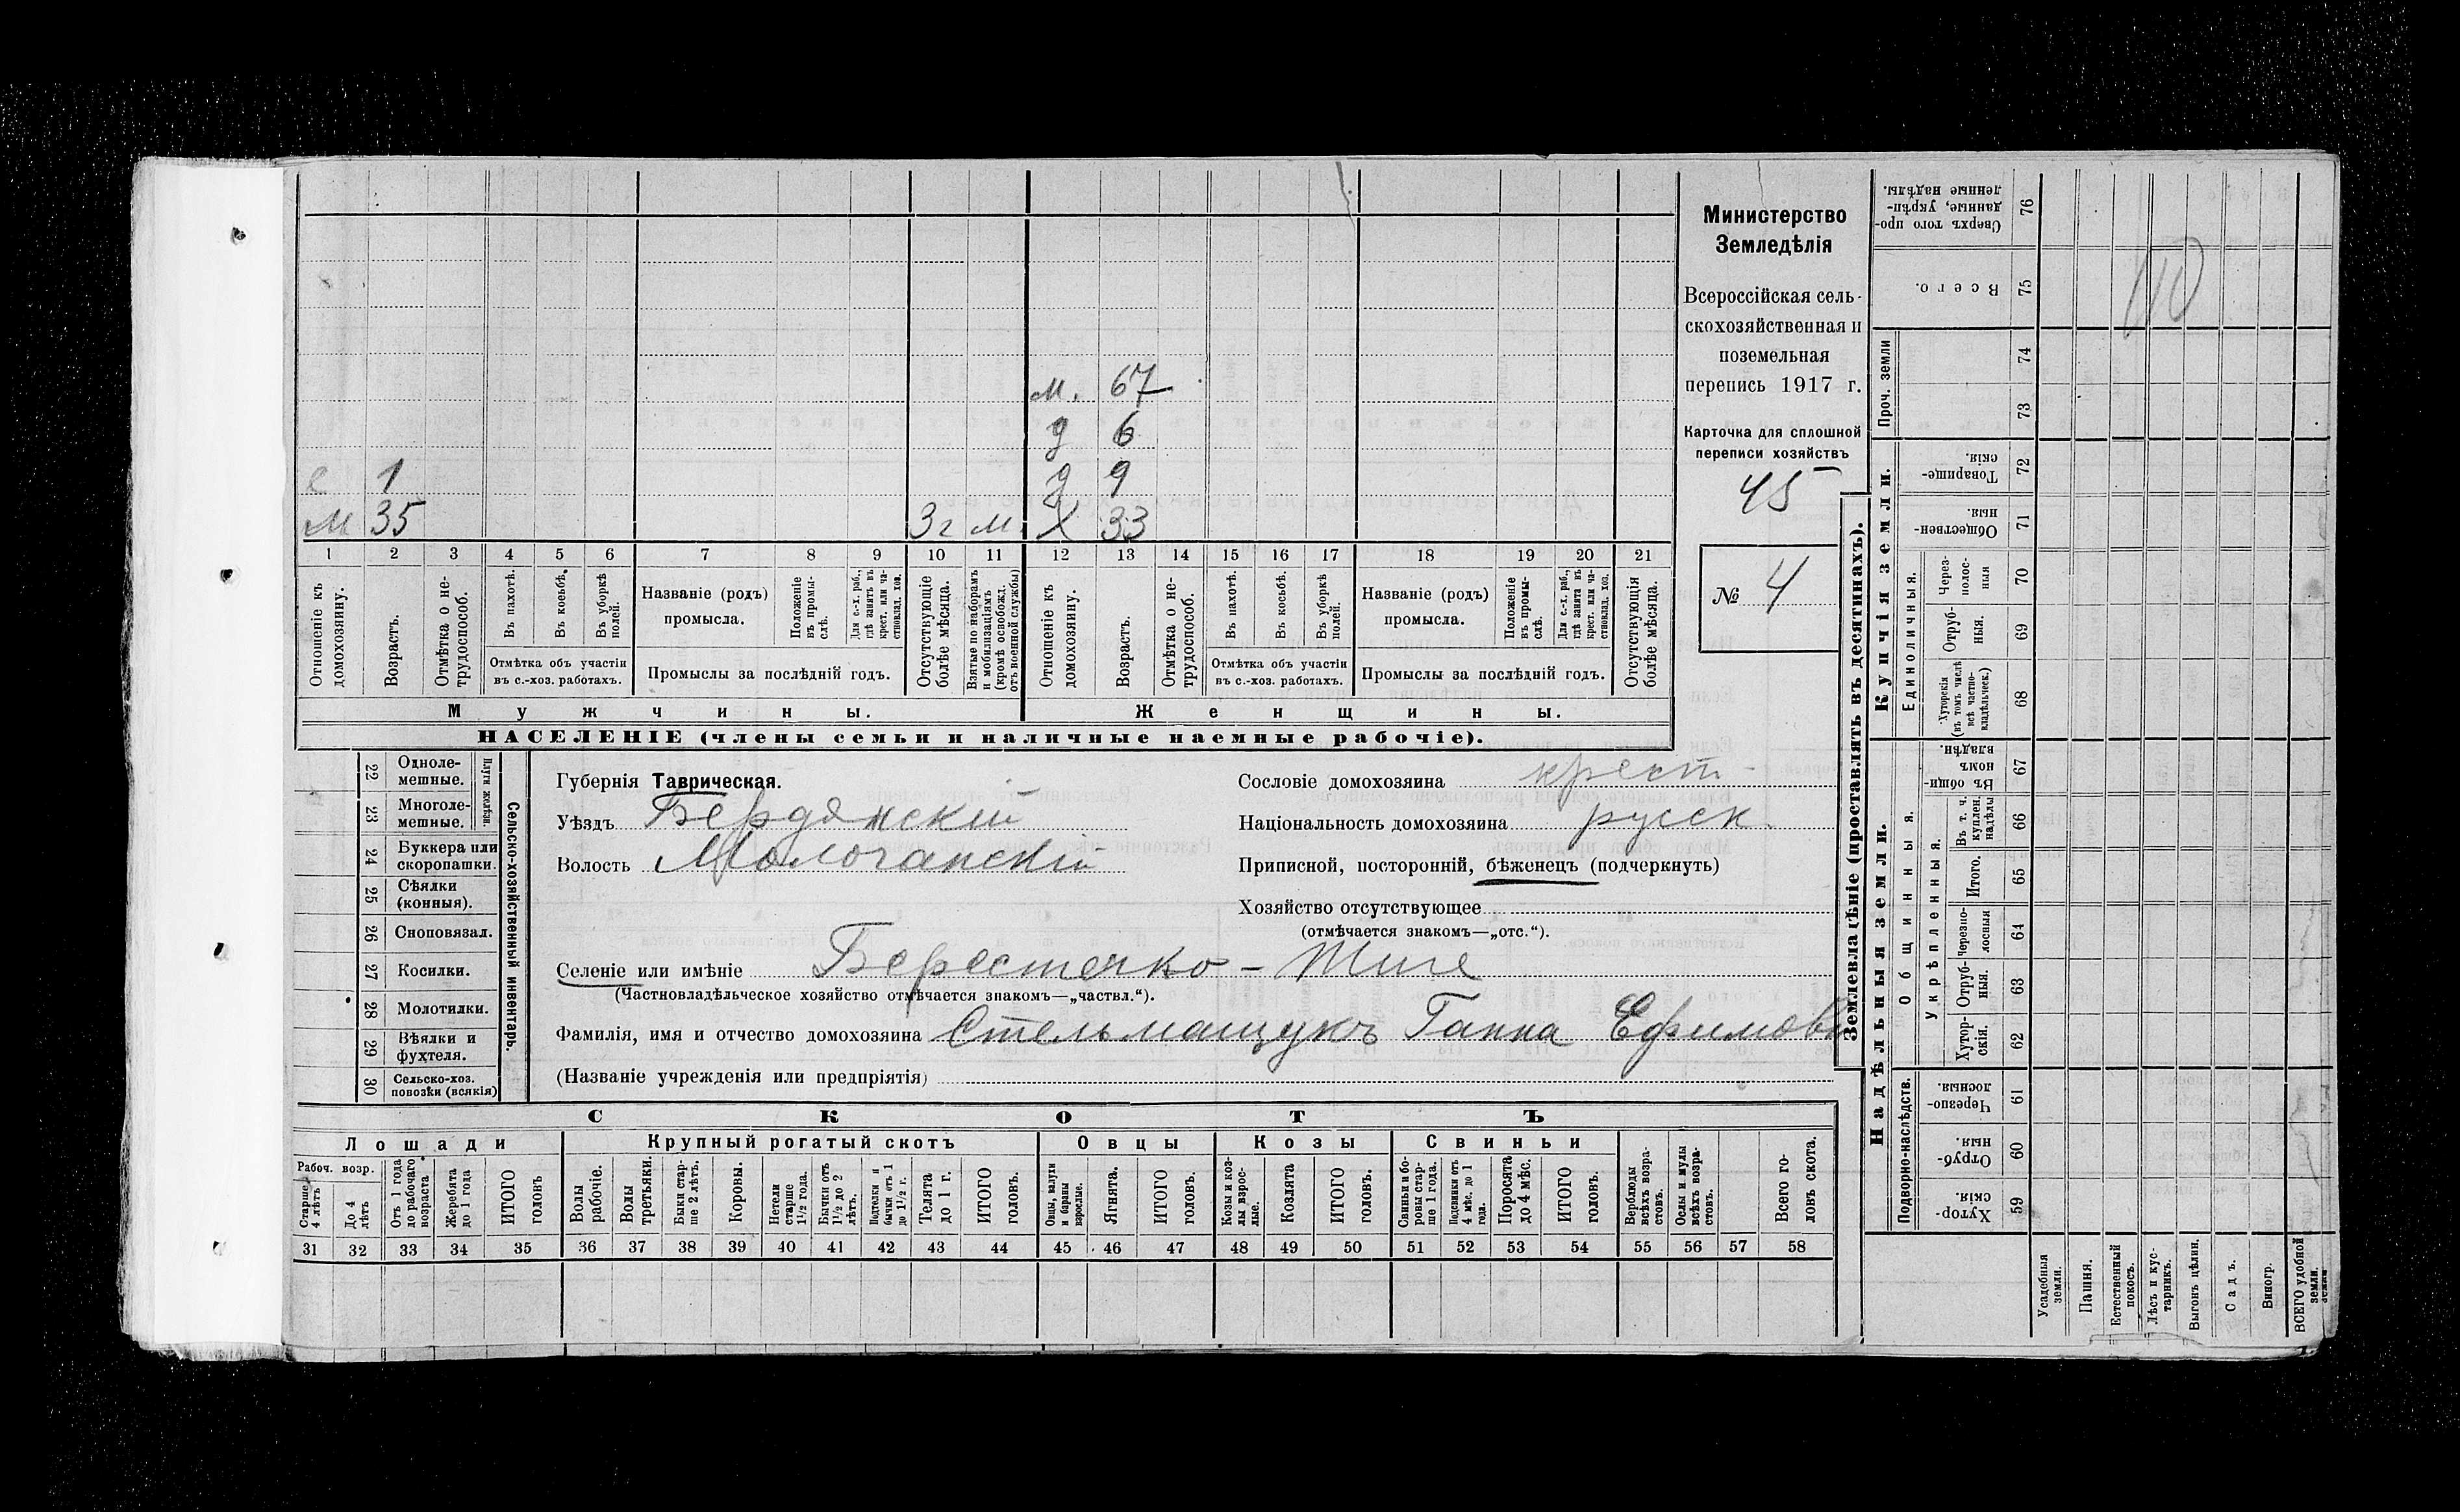 м. 67
д 6
с 1 д 9
м 35 3г м. Х 33
1 2 3 4 5 6 7 8 9 10 11 12 13 14 15 16 17 18 19 20 21
Отношеніе къ домохозяину.
Возрастъ.
Отмѣтка о нетрудоспособ.
Въ пахотѣ.
Въ косьбѣ.
Въ уборкѣ полей.
Отмѣтка объ участіи
въ с.-хоз. работахъ.
Названіе (родъ)
промысла.
Положеніе въ промыслѣ.
Для с.-х. раб., гдѣ занятъ въ крест. или частновлад. хоз.
Промыслы за послѣдній годъ.
Отсутствующіе болѣе мѣсяца.
Взятые по наборамъ и мобилизаціямъ (кромѣ освобожд. отъ военной службы)
Отношеніе къ домохозяину.
Возрастъ.
Отмѣтка о нетрудоспособ.
Въ пахотѣ.
Въ косьбѣ.
Въ уборкѣ полей.
Отмѣтка объ участіи
въ с.-хоз. работахъ.
Названіе (родъ)
промысла.
Положеніе въ промыслѣ.
Для с.-х. раб., гдѣ занята въ крест. или частновлад. хоз.
Промыслы за послѣдній годъ.
Отсутствующія болѣе мѣсяца.
Мужчины. Женщины.
НАСЕЛЕНІЕ (члены семьи и наличные наемные рабочіе).
Министерство
Земледѣлія
Всероссійская сель-
скохозяйственная и
поземельная
перепись 1917 г.
Карточка для сплошной
переписи хозяйствъ
45
№ 4
22 Одноле-
мешные.
23 Многоле-
мешные.
Плуги желѣзн.
24 Буккера или
скоропашки.
25 Сѣялки
(конныя).
26 Сноповязал.
27 Косилки.
28 Молотилки.
29 Вѣялки и
фухтеля.
30 Сельско-хоз.
повозки (всякія)
Сельско-хозяйственный инвентарь.
Губернія Таврическая.
Уѣздъ Бердянскій
Волость Молочанскій
Сословіе домохозяина крест-
Національность домохозяина русск.
Приписной, посторонній, бѣженецъ (подчеркнуть)
Хозяйство отсутствующее
(отмѣчается знакомъ—„отс.“).
Селеніе или имѣніе Берестечко - Тиге
(Частновладѣльческое хозяйство отмѣчается знакомъ—„частвл.“).
Фамилія, имя и отчество домохозяина Стельмащукъ Ганна Ефимовн
(Названіе учрежденія или предпріятія)
СКОТЪ
Лошади Крупный рогатый скотъ Овцы Козы Свиньи
Рабоч. возр.
Старше 4 лѣтъ
До 4 лѣтъ
Отъ 1 года до рабочаго возраста
Жеребята до 1 года
ИТОГО головъ
Волы рабочіе.
Волы третьяки.
Быки старше 2 лѣтъ.
Коровы.
Нетели старше 1½ года.
Бычки отъ 1½ до 2 лѣтъ.
Подтелки и бычки отъ 1 до 1½ г.
Телята до 1 г.
ИТОГО головъ.
Овцы, валухи и бараны взрослые.
Ягнята.
ИТОГО головъ.
Козы и козлы взрослые.
Козлята
ИТОГО головъ.
Свиньи и боровы старше 1 года.
Подсвинки отъ 4 мѣс. до 1 года.
Поросята до 4 мѣс.
ИТОГО головъ.
Верблюды всѣхъ возрастовъ.
Ослы и мулы всѣхъ возрастовъ.
Всего головъ скота.
31 32 33 34 35 36 37 38 39 40 41 42 43 44 45 46 47 48 49 50 51 52 53 54 55 56 57 58
Землевладѣніе (проставлять въ десятинахъ).
Сверхъ того проданные, укрѣпленные надѣлы. 76
Всего. 75
Проч. земли
74
73
Купчія земли.
Товарищескія. 72
Общественныя 71
Единоличныя.
Черезполосныя 70
Отрубныя. 69
Хуторскія (въ томъ числѣ всѣ частновладѣльческ.) 68
Надѣльныя земли.
Общинныя.
Въ общинномъ владѣн. 67
Укрѣпленныя.
Въ т. ч. куплен. надѣлы 66
Итого. 65
Черезполосныя 64
Отрубныя. 63
Хуторскія. 62
Подворно-наслѣдств.
Черезполосныя 61
Отрубныя. 60
Хуторскія. 59
Усадебныя земли.
Пашня.
Естественный покосъ.
Лѣсъ и кустарникъ.
Выгонъ цѣлин.
Садъ.
Виногр.
ВСЕГО удобной земли.